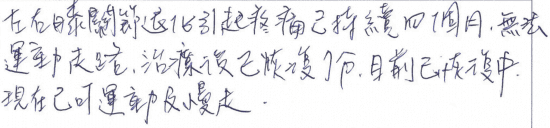 左右膝關節退化引起疼痛已持續四個月，無法
運動走路，治療後已恢復7分，目前已恢復中．
現在已可運動及慢走．